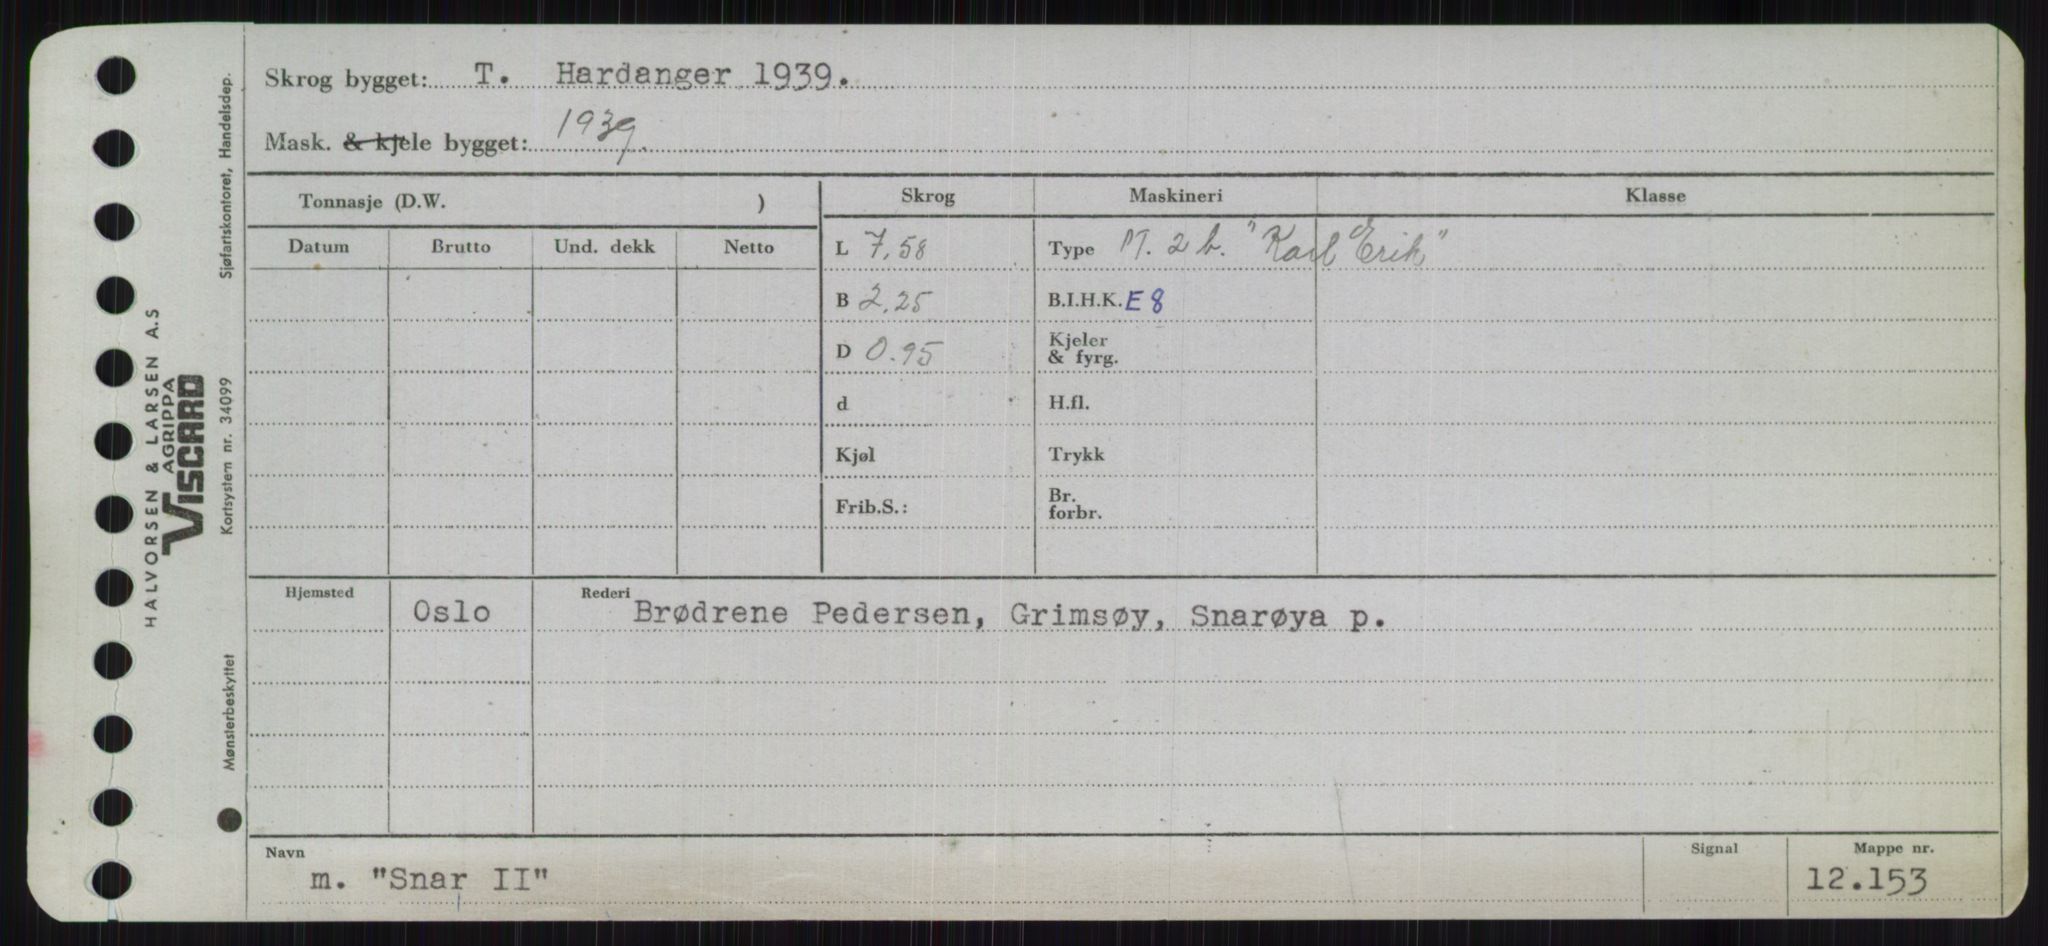 Skrog bygget: T. Hardanger 1939.
Mask. & kjele bygget: 1939.
Tonnasje (D.W. )
Datum Brutto Und. dekk Netto
Skrog Maskineri Klasse
L 7,58 Type 1T. 2 b. "Karl Erik"
B 2,25 B.I.H.K. E 8
D 0.95 Kjeler
& fyrg.
d H.fl.
Kjøl Trykk
Frib.S.: Br.
forbr.
Hjemsted Oslo Rederi Brødrene Pedersen, Grimsøy, Snarøya p.
Navn Signal Mappe nr.
m. "Snar II" 12.153
HALVORSEN & LARSEN A.S
AGRIPPA
VISCARD
Sjøfartskontoret, Handelsdep.
Kortsystem nr. 34099
Mønsterbeskyttet